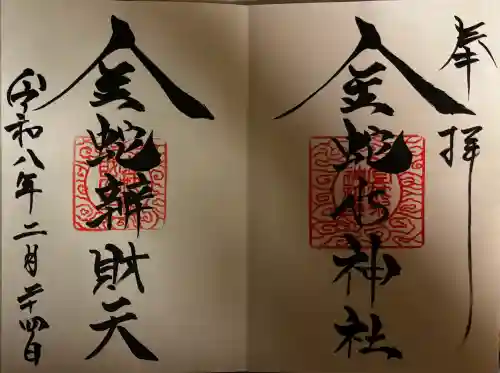 奉拝
金蛇水神社
金蛇辨財天
令和八年二月廿四日